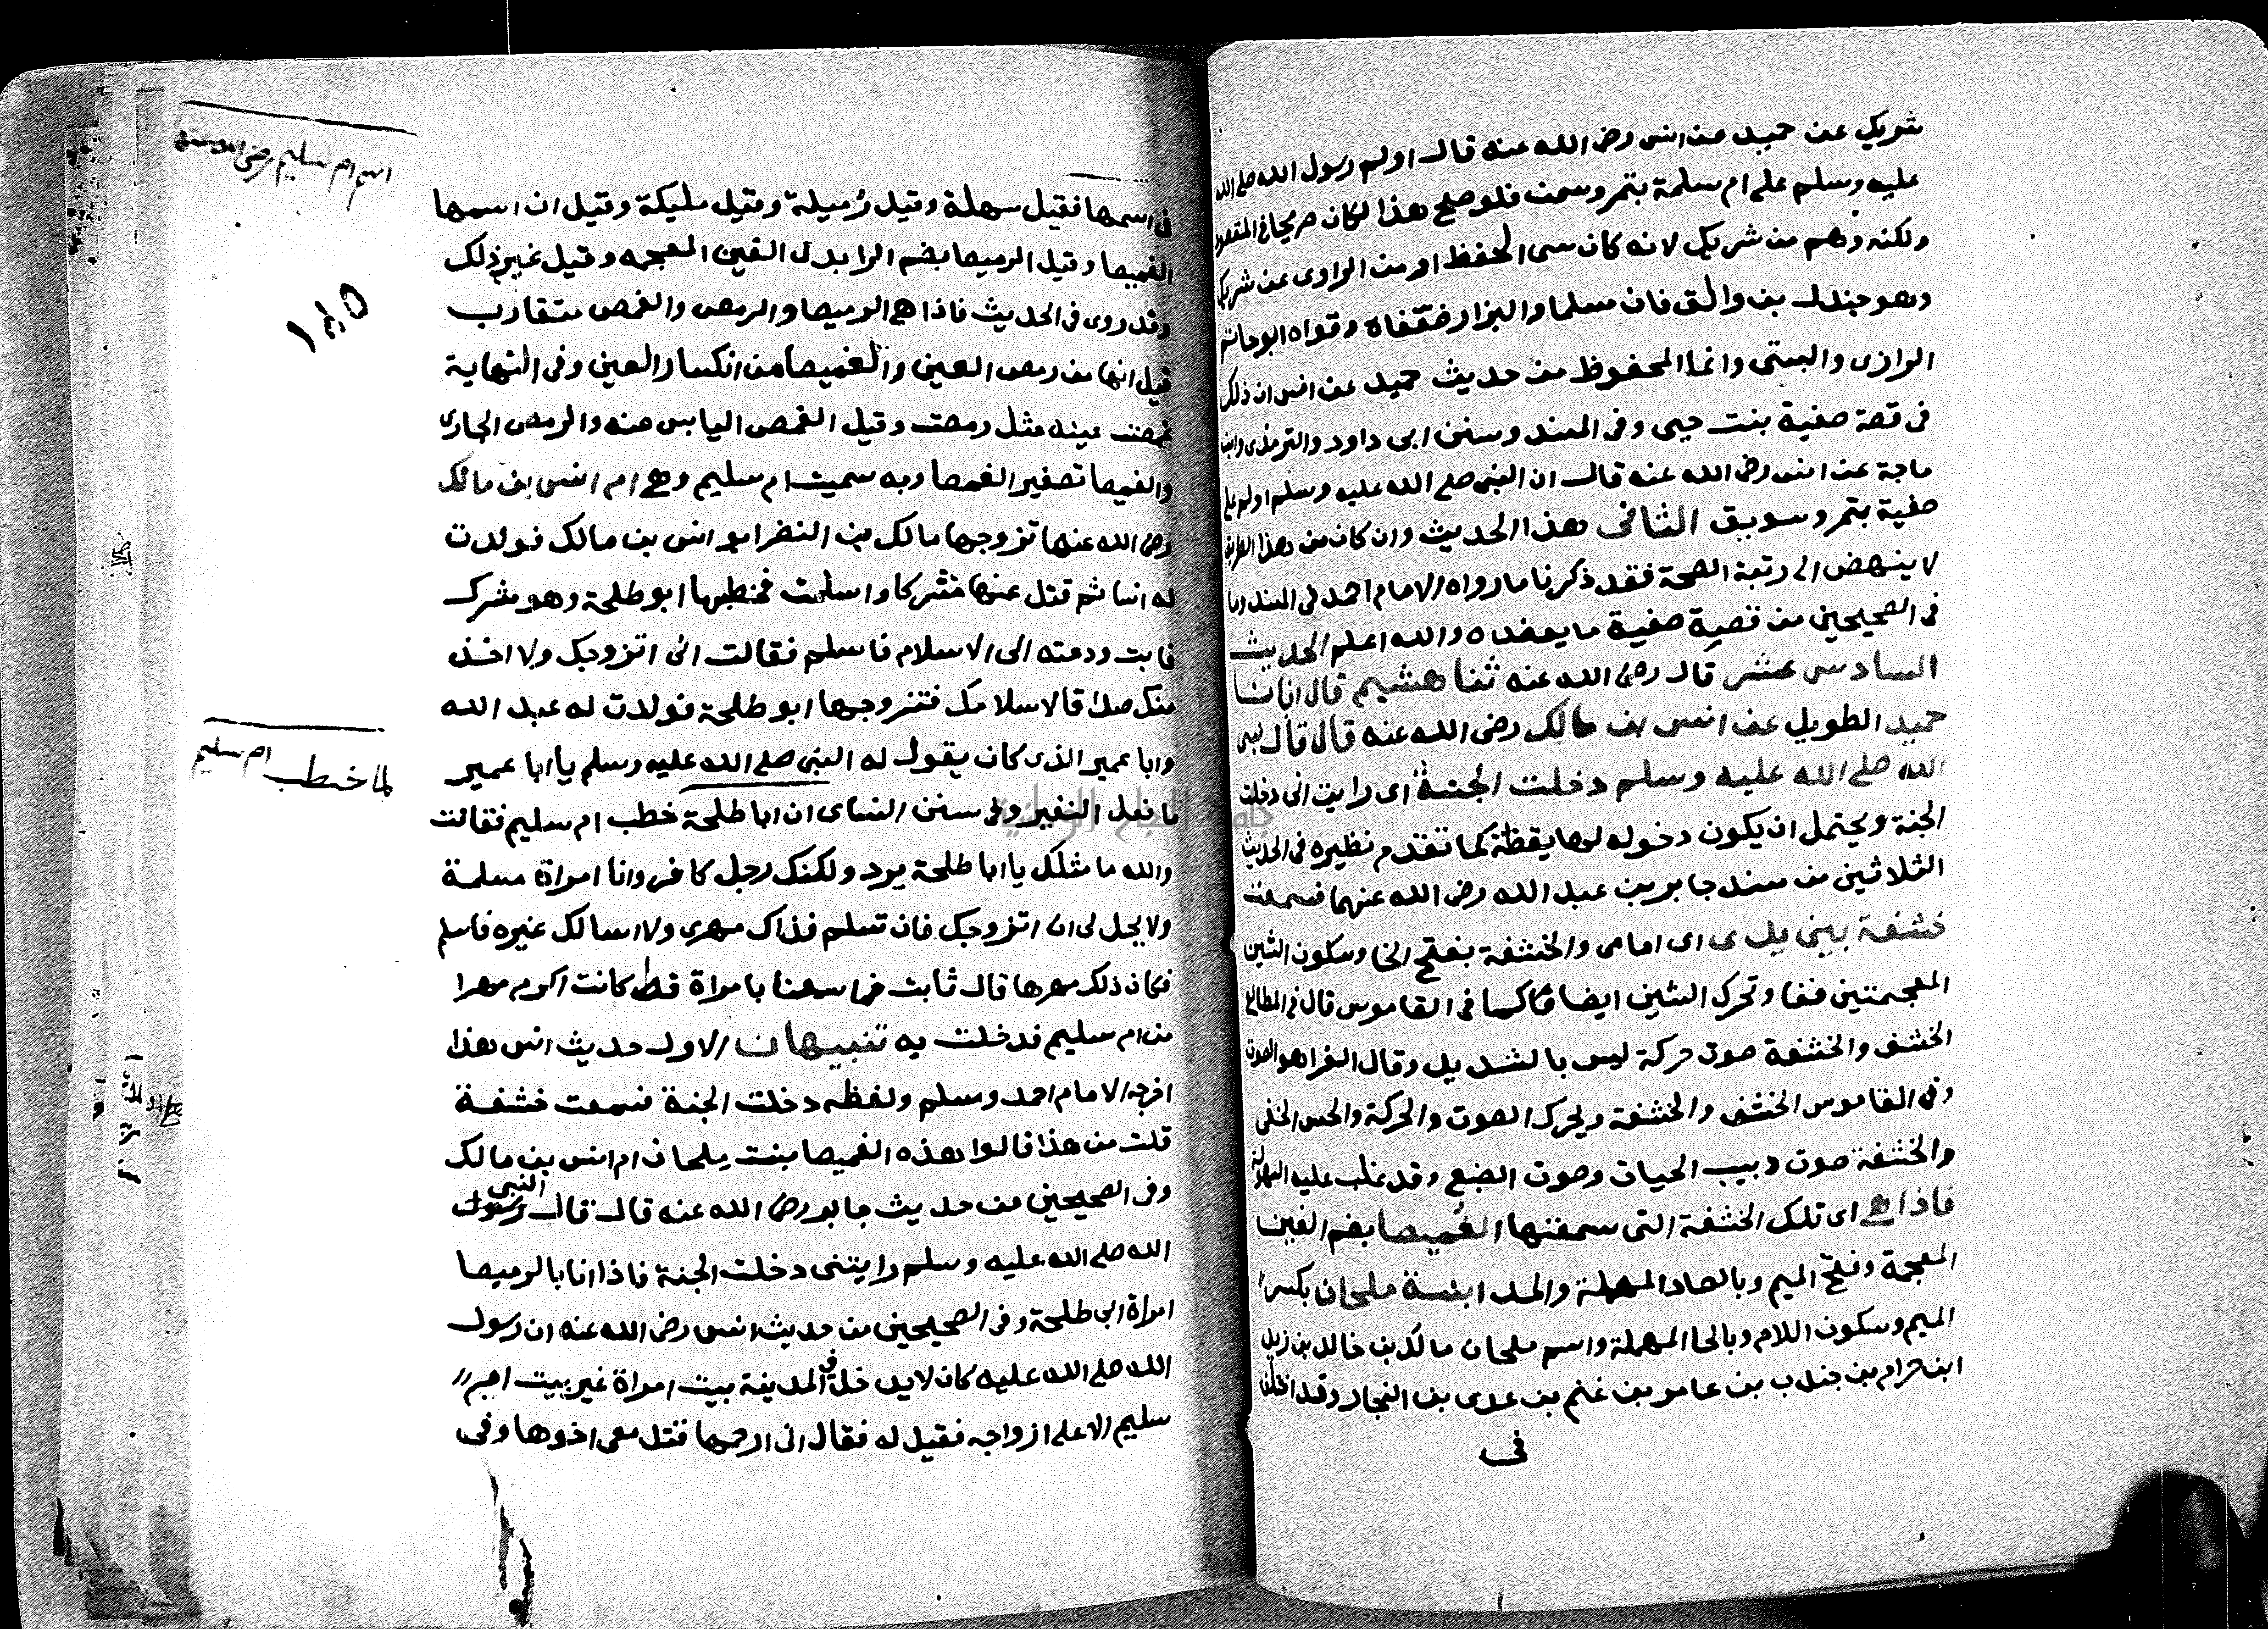 شريك عن حميد عن انس رضى الله عنه قال اولم رسول الله صلى الله
عليه وسلم على ام سلمة بتمر وسمن فلو صح هذا لكان صريحا فى المقصود
ولكنه وهم من شريك لانه كان سى الحفظ او من الراوى عن شريك
وهو جندل بن والق فان مسلما والبزار ضعفاه وقواه ابو حاتم
الرازى والبستى وانما المحفوظ من حديث حميد عن انس ان ذلك
فى قصة صفية بنت حيى وفى المسند وسنن ابى داود والترمذى وابن
ماجة عن انس رضى الله عنه قال ان النبى صلى الله عليه وسلم اولم على
صفية بتمر وسويق الثانى هذا الحديث وان كان من هذا الطريق
لا ينهض الى رتبة الصحة فقد ذكرنا ما رواه الامام احمد فى المسند وما
فى الصحيحين من قصة صفية ما يعضده والله اعلم الحديث
السادس عشر قال رضى الله عنه ثنا هشيم قال انبانا
حميد الطويل عن انس بن مالك رضى الله عنه قال قال نبى
الله صلى الله عليه وسلم دخلت الجنة اى رايت انى دخلت
الجنة ويحتمل ان يكون دخوله لها يقظة كما تقدم نظيره فى الحديث
الثلاثين من مسند جابر بن عبد الله رضى الله عنهما فسمعت
خشفة بين يدى اى امامى والخشفة بفتح الخا وسكون الشين
المعجمتين ففا وتحرك الشين ايضا كما فى القاموس قال فى المطالع
الخشف والخشفة صوت حركة ليس بالشديد وقال الفرا هو الصوت
وفى القاموس الخشف والخشفة ويحرك الصوت والحركة والحس الخفى
والخشفة صوت دبيب الحيات وصوت الضبع وقد غلب عليه
فاذا هى اى تلك الخشفة التى سمعتها الغميصا بضم الغين
المعجمة وفتح الميم وبالصاد المهملة والمد ابنة ملحان بكسر
الميم وسكون اللام وبالحا المهملة واسم ملحان مالك بن خالد بن زيد
ابن حرام بن جندب بن عامر بن غنم بن عدى بن النجار وقد اختلف
فى
اسم ام سليم رضى الله عنها
١٤٥
فى اسمها فقيل سهلة وقيل رميلة وقيل مليكة وقيل ان اسمها
الغميصا وقيل الرميصا بضم الرا بدل الغين المعجمه وقيل غير ذلك
وقد روى فى الحديث فاذا هى الرميصا والرمص والغمص متقارب
قيل انها من رمص العين والغميصا من انكسار العين وفى النهاية
غمصت عينه مثل رمصت وقيل الغمص اليابس منه والرمص الجارى
والغميصا تصغير الغمصا وبه سميت ام سليم وهى ام انس بن مالك
رضى الله عنها تزوجها مالك بن النضر ابو انس بن مالك فولدت
له انسا ثم قتل عنها مشركا واسلمت فخطبها ابو طلحة وهو مشرك
فابت ودعته الى الاسلام فاسلم فقالت انى اتزوجك ولا اخذ
منك صداقا لاسلامك فتزوجها ابو طلحة فولدت له عبد الله
وابا عمير الذى كان يقول له النبى صلى الله عليه وسلم يا ابا عمير
لما خطب ام سليم
ما فعل النغير وفى سنن النساى ان ابا طلحة خطب ام سليم فقالت
والله ما مثلك يا ابا طلحة يرد ولكنك رجل كافر وانا امراة مسلمة
ولا يحل لى ان اتزوجك فان تسلم فذاك مهرى ولا اسالك غيره فاسلم
فكان ذلك مهرها قال ثابت فما سمعنا بامراة قط كانت اكرم مهرا
من ام سليم فدخلت به تنبيهان الاول حديث انس هذا
اخرجه الامام احمد ومسلم ولفظه دخلت الجنة فسمعت خشفة
قلت من هذا قالوا هذه الغميصا بنت ملحان ام انس بن مالك
وفى الصحيحين من حديث جابر رضى الله عنه قال قال النبى رسول
الله صلى الله عليه وسلم رايتنى دخلت الجنة فاذا انا بالرميصا
امراة ابى طلحة وفى الصحيحين من حديث انس رضى الله عنه ان رسول
الله صلى الله عليه كان لا يدخل فى المدينة بيت امراة غير بيت ام
سليم الا على ازواجه فقيل له فقال انى ارحمها قتل معى اخوها وفى